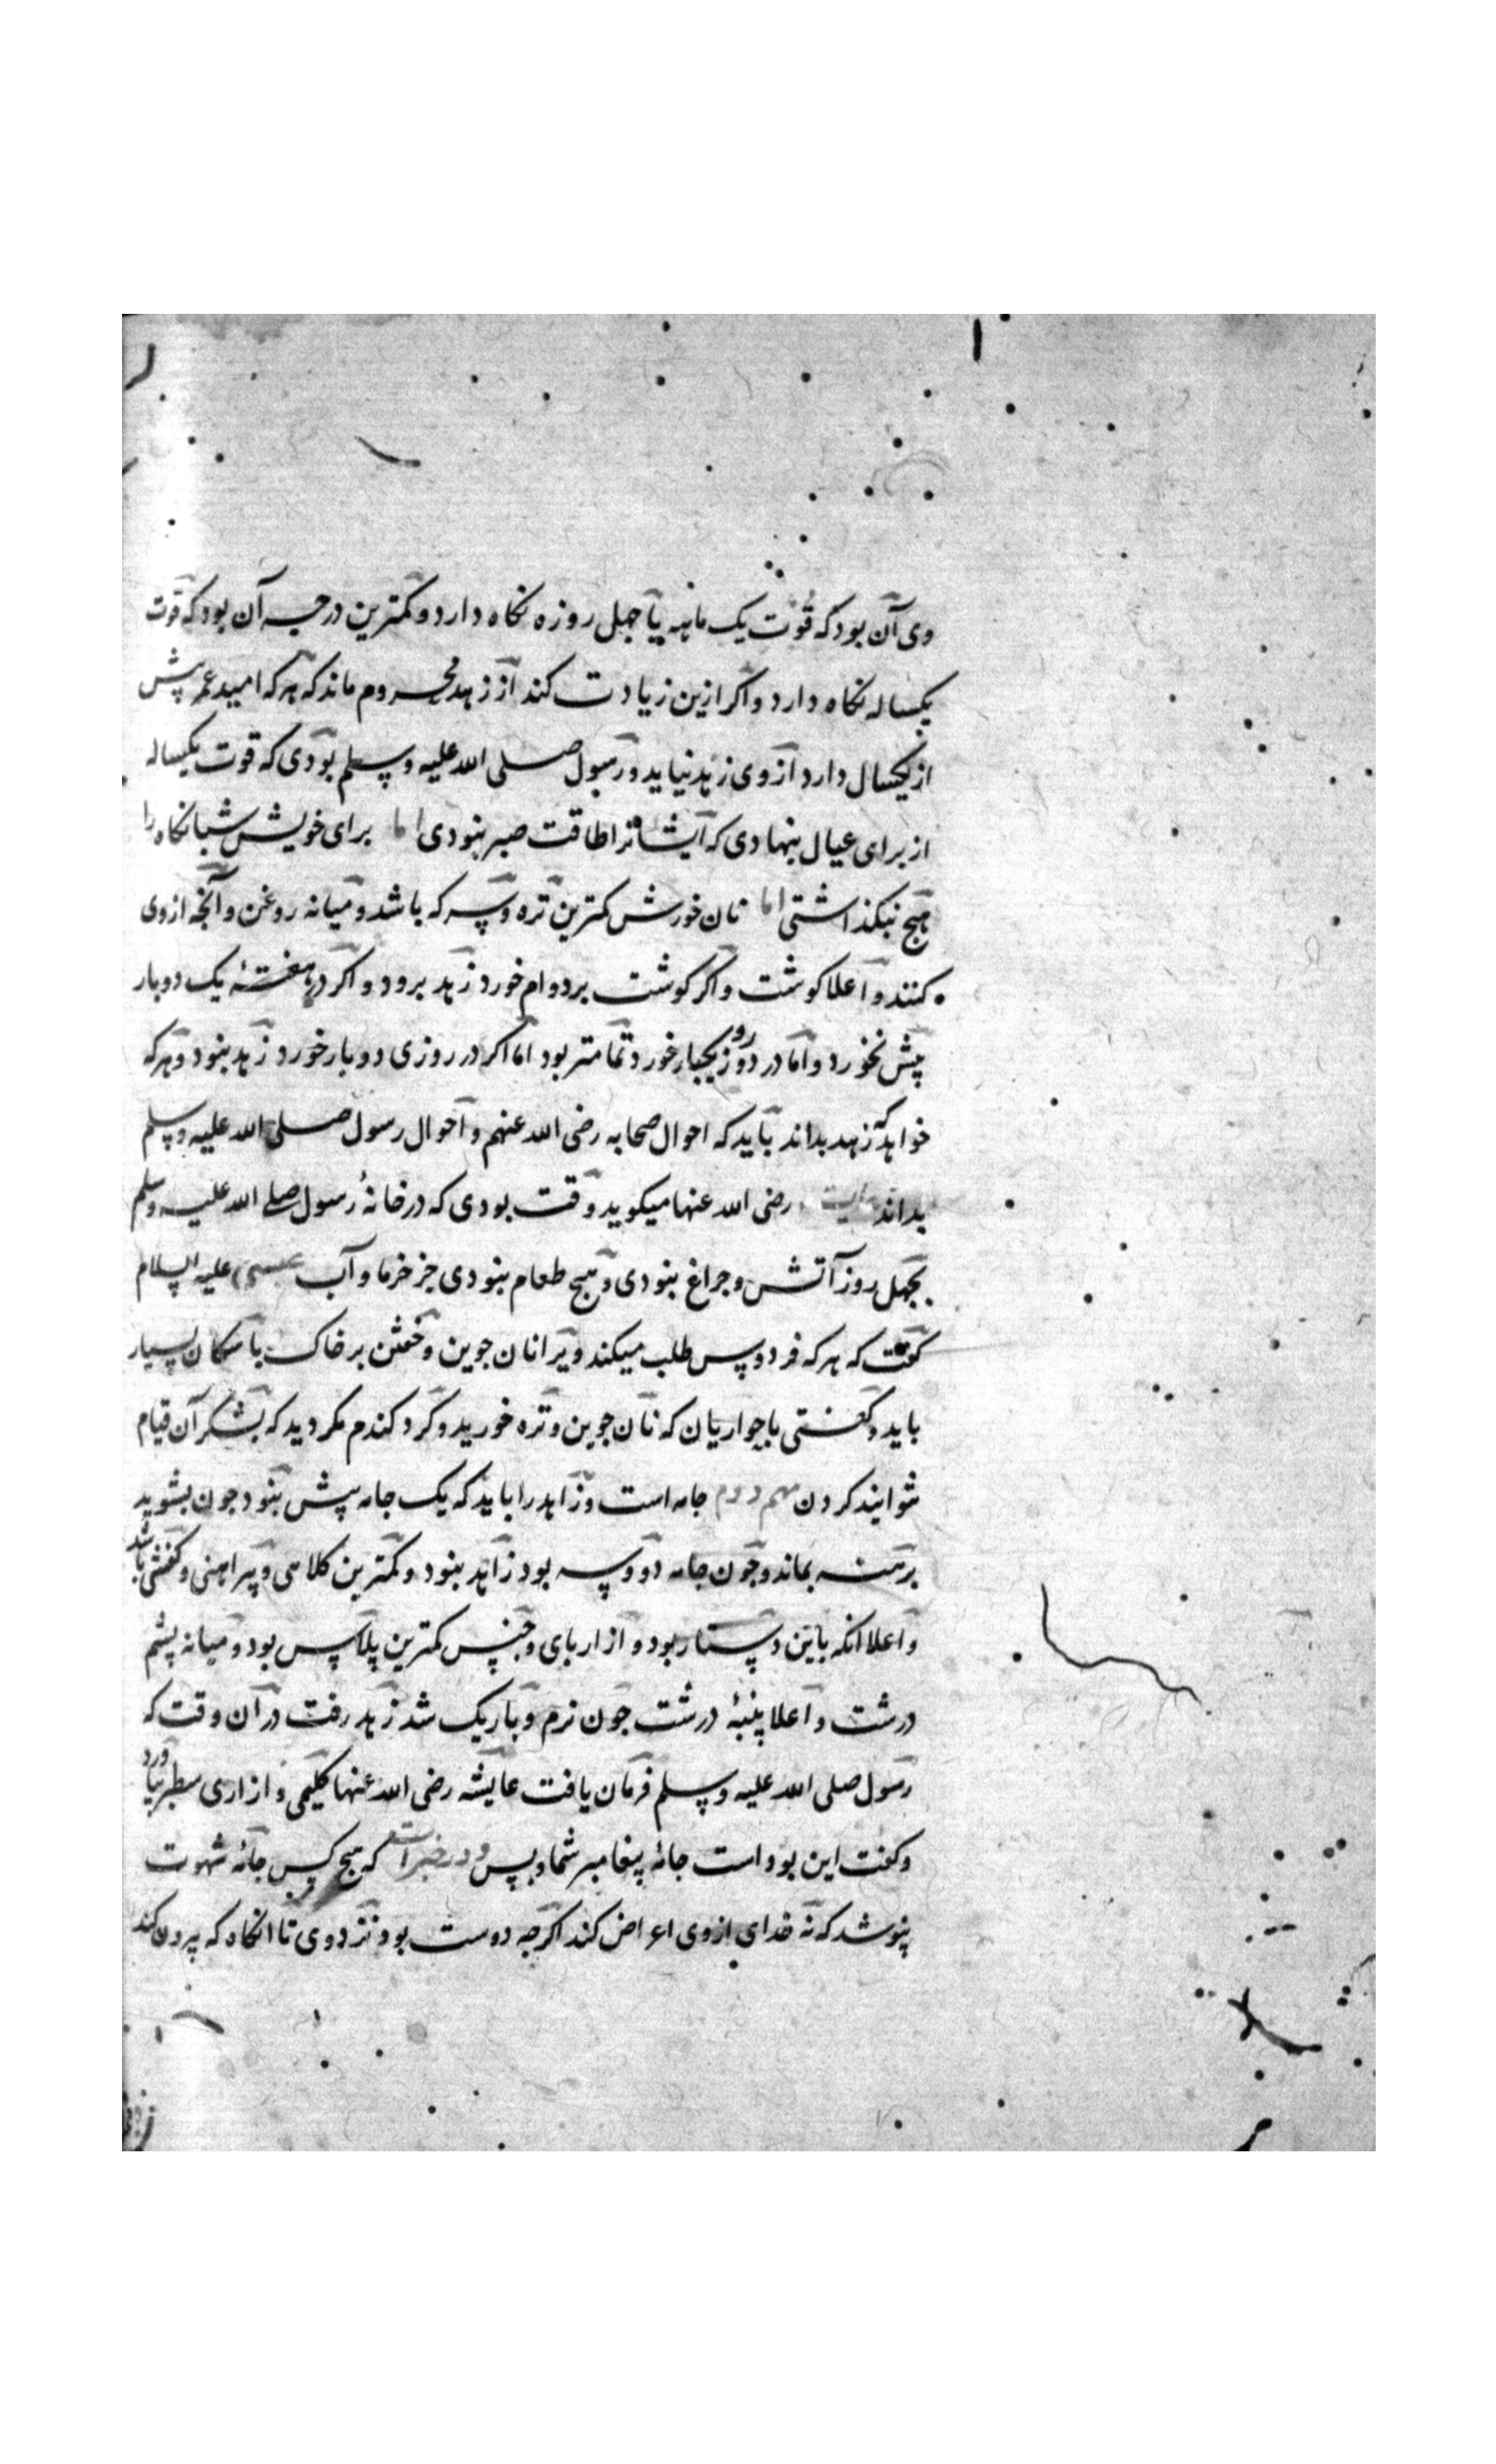 وی آن بود که قوت یک ماهه یا چهل روزه نکاه دارد و کمترین درجه آن بود که قوت
یکساله نکاه دارد و اکر ازین زیادت کند از زهد محروم ماند که هر که امید عمر پیش
از یکسال دارد از وی زهد نیاید و رسول صلی الله علیه وسلم بودی که قوت یکساله
از برای عیال بنهادی که ایشانرا طاقت صبر نبودی اما برای خویش شبانکاه را
هیچ نبکذاشتی اما نان خورش کمترین تره و سرکه باشد و میانه روغن و آنچه از وی
کنند و اعلا کوشت و اکر کوشت بر دوام خورد زهد برود و اکر در هفتهٔ یک دو بار
پیش نخورد و اما در دو روز یکبار خورد تمامتر بود اما اکر در روزی دو بار خورد زهد نبود و هر که
خواهد که زهد بداند باید که احوال صحابه رضی الله عنهم و احوال رسول صلی الله علیه وسلم
بداند رضی الله عنها میکوید وقت بودی که در خانهٔ رسول صلی الله علیه وسلم
بچهل روز آتش و چراغ نبودی و هیچ طعام نبودی جز خرما و آب عیسی علیه السلام
کفت که هر که فردوس طلب میکند ویرا نان جوین و خفتن بر خاک با سکان بسیار
باید و کفتی با حواریان که نان جوین و تره خورید و کرد کندم مکردید که بشکر آن قیام
نتوانید کردن مهم دوم جامه است و زاهد را باید که یک جامه بیش نبود چون بشوید
برهنه بماند و چون جامه دو و سه بود زاهد نبود و کمترین کلاهی و پیراهنی و کفشی باشد
و اعلا انکه با این دستار بود و ازار پای و جنس کمترین پلاس بود و میانه پشم
درشت و اعلا پنبهٔ درشت چون نرم و باریک شد زهد رفت در آن وقت که
رسول صلی الله علیه وسلم فرمان یافت عایشه رضی الله عنها کلیمی و ازاری سطبر بیاورد
و کفت این بوده است جامهٔ پیغامبر شما و بس و در خبر است که هیچ کس جامهٔ شهوت
نپوشد که نه خدای از وی اعراض کند اکرچه دوست بود نزد وی تا انکاه که بیرون کند